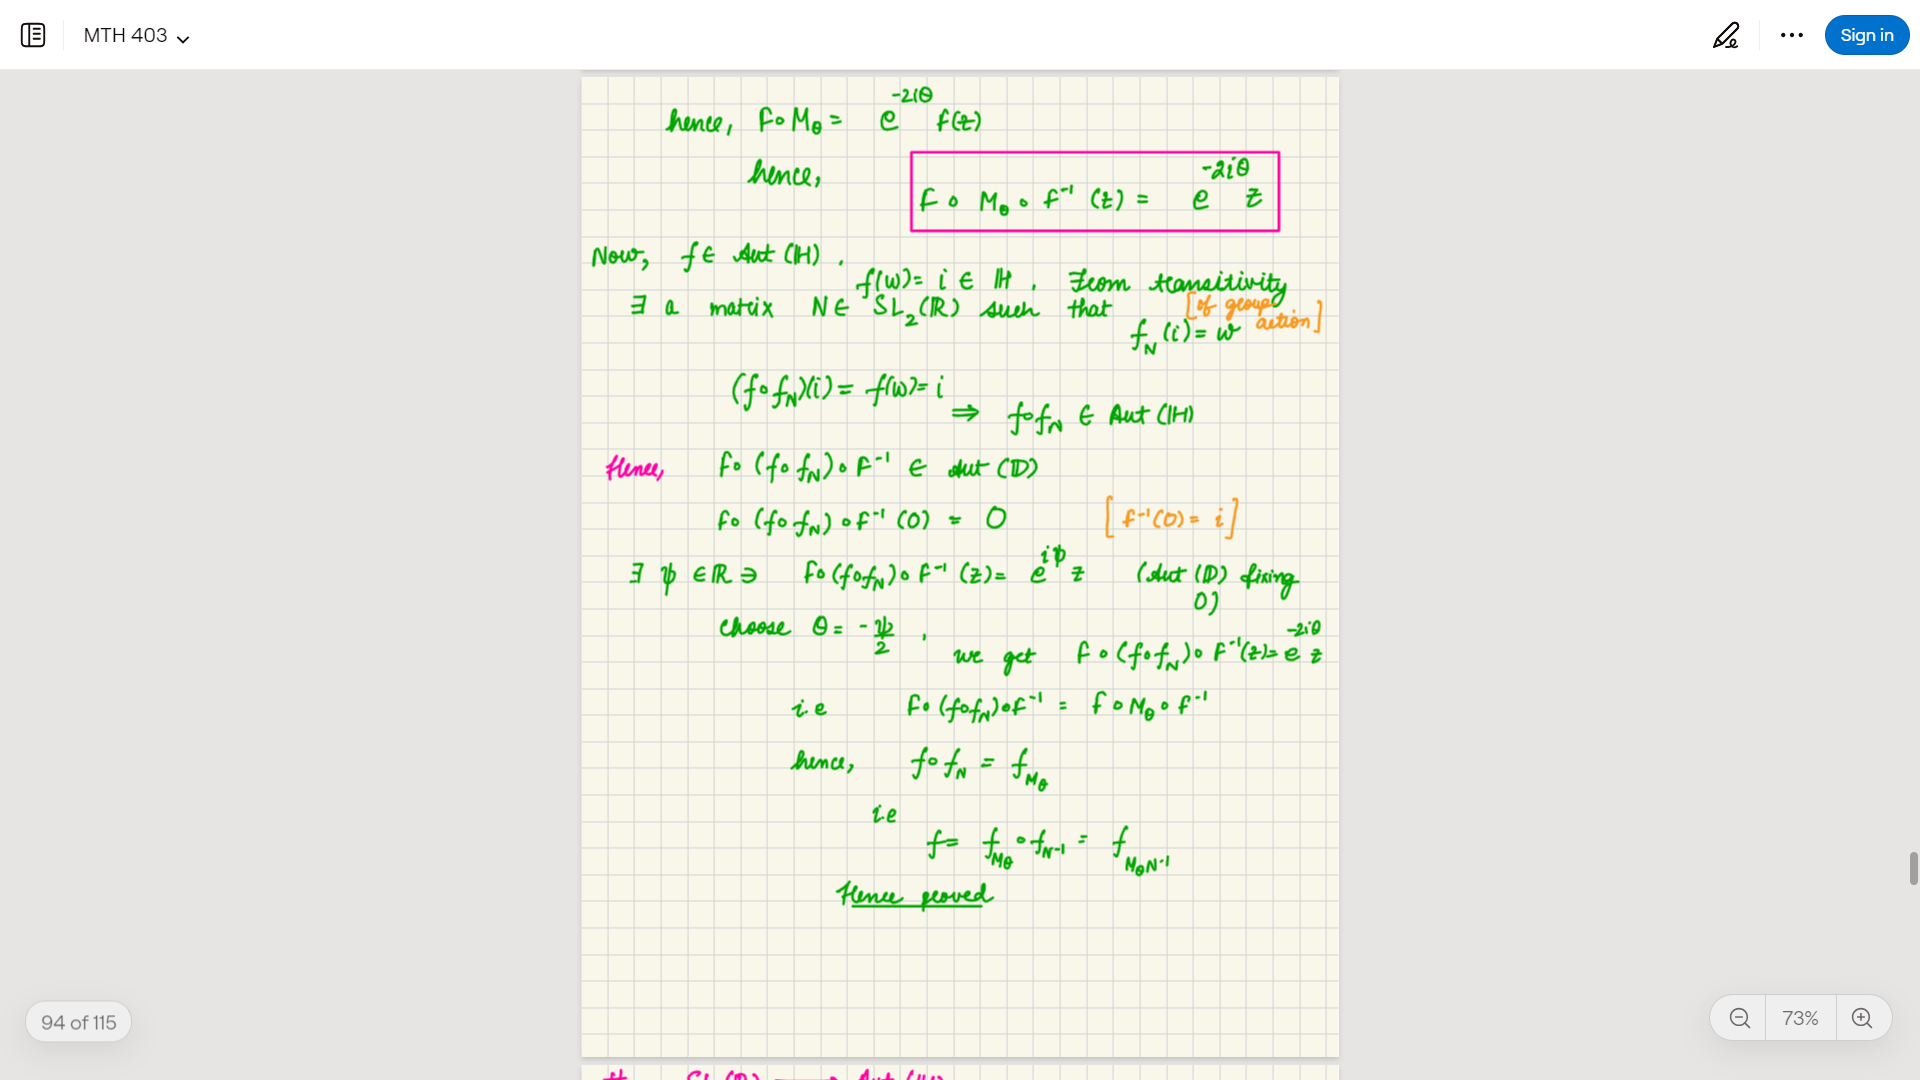 MTH 403
Sign in
hence, F∘M_θ = e^{-2iθ} f(z)
hence, F∘M_θ∘F⁻¹(z) = e^{-2iθ} z
Now, f ∈ Aut(ℍ).
f(w) = i ∈ ℍ. From transitivity
[of group action]
∃ a matrix N ∈ SL₂(ℝ) such that
f_N(i) = w
(f∘f_N)(i) = f(w) = i
⇒ f∘f_N ∈ Aut(ℍ)
Hence, F∘(f∘f_N)∘F⁻¹ ∈ Aut(𝔻)
F∘(f∘f_N)∘F⁻¹(0) = 0 [F⁻¹(0) = i]
∃ ψ ∈ ℝ ∋ F∘(f∘f_N)∘F⁻¹(z) = e^{iψ} z (Aut(𝔻) fixing
0)
choose θ = -ψ/2,
we get F∘(f∘f_N)∘F⁻¹(z) = e^{-2iθ} z
i.e F∘(f∘f_N)∘F⁻¹ = F∘M_θ∘F⁻¹
hence, f∘f_N = f_{M_θ}
ie
f = f_{M_θ}∘f_{N⁻¹} = f_{M_θN⁻¹}
Hence proved
94 of 115
73%